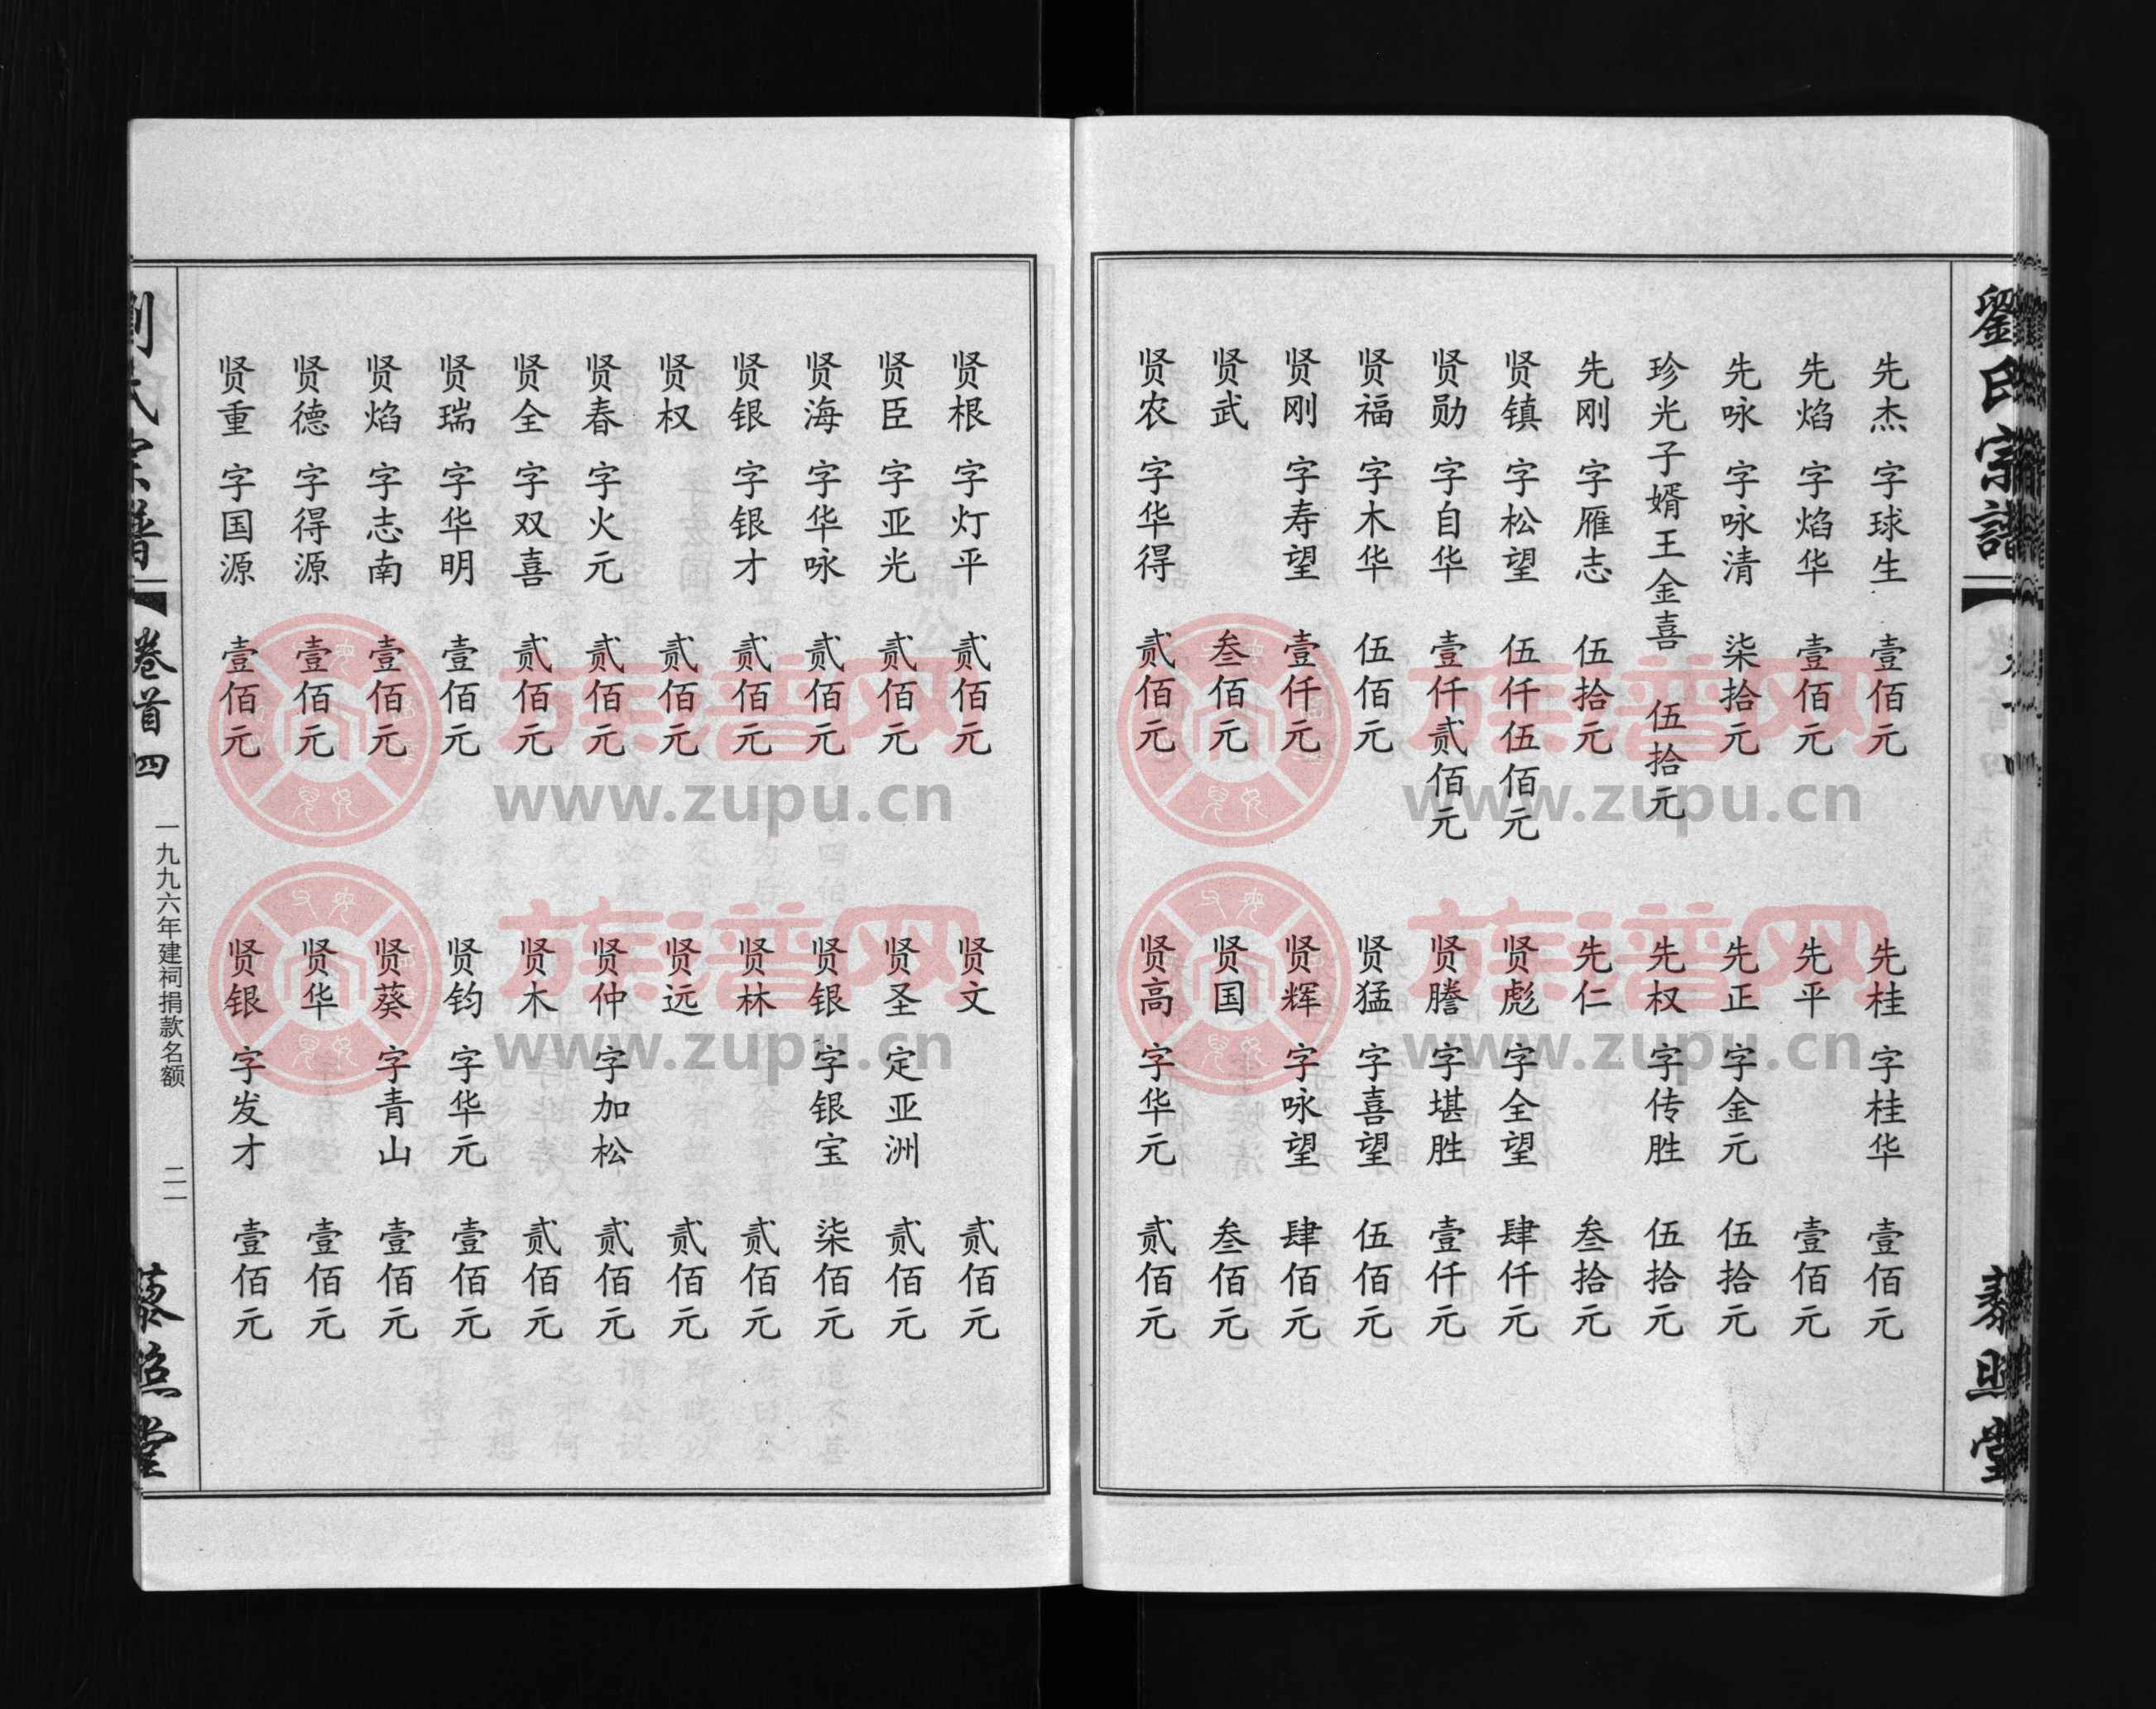 劉氏宗譜
藜照堂
先杰 字球生 壹佰元
先焰 字焰华 壹佰元
先咏 字咏清 柒拾元
珍光子婿王金喜 伍拾元
先刚 字雁志 伍拾元
贤镇 字松望 伍仟伍佰元
贤勋 字自华 壹仟贰佰元
贤福 字木华 伍佰元
贤刚 字寿望 壹仟元
贤武 叁佰元
贤农 字华得 贰佰元
先桂 字桂华 壹佰元
先平 壹佰元
先正 字金元 伍拾元
先权 字传胜 伍拾元
先仁 叁拾元
贤彪 字全望 肆仟元
贤謄 字堪胜 壹仟元
贤猛 字喜望 伍佰元
贤辉 字咏望 肆佰元
贤国 叁佰元
贤高 字华元 贰佰元
贤根 字灯平 贰佰元
贤臣 字亚光 贰佰元
贤海 字华咏 贰佰元
贤银 字银才 贰佰元
贤权 贰佰元
贤春 字火元 贰佰元
贤全 字双喜 贰佰元
贤瑞 字华明 壹佰元
贤焰 字志南 壹佰元
贤德 字得源 壹佰元
贤重 字国源 壹佰元
贤文 贰佰元
贤圣 定亚洲 贰佰元
贤银 字银宝 柒佰元
贤林 贰佰元
贤远 贰佰元
贤仲 字加松 贰佰元
贤木 贰佰元
贤钧 字华元 壹佰元
贤葵 字青山 壹佰元
贤华 壹佰元
贤银 字发才 壹佰元
劉氏宗譜
卷首四
一九九六年建祠捐款名额
二一
藜照堂
族谱网
www.zupu.cn
族谱网
www.zupu.cn
族谱网
www.zupu.cn
族谱网
www.zupu.cn